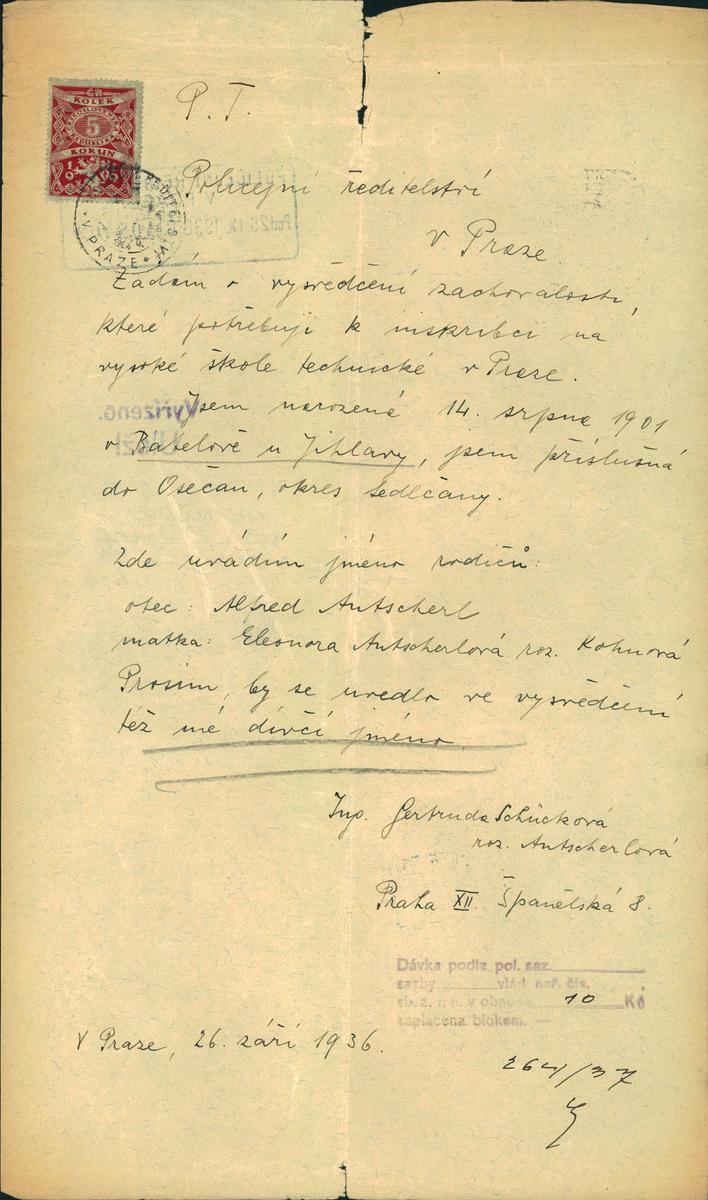 P. T.
ČR
KOLEK
5
KORUN
Policejní ředitelství
v Praze
V PRAZE
Žádám o vysvědčení zachovalosti,
které potřebuji k inskribci na
vysoké škole technické v Praze.
Vyřízeno.
Jsem narozená 14. srpna 1901
v Batelově u Jihlavy, jsem příslušná
do Osečan, okres Sedlčany.
Zde uvádím jméno rodičů:
otec: Alfred Autscherl
matka: Eleonora Autscherlová roz. Kohnová
Prosím, by se uvedlo ve vysvědčení
též mé dívčí jméno.
Ing. Gertruda Schücková
roz. Autscherlová
Praha XII. Španělská 8.
Dávka podle pol. saz.
sazby vlád nař. čís.
sb. z. a n. v obnose 10 Kč
zaplacena blokem. —
V Praze, 26. září 1936.
264/37